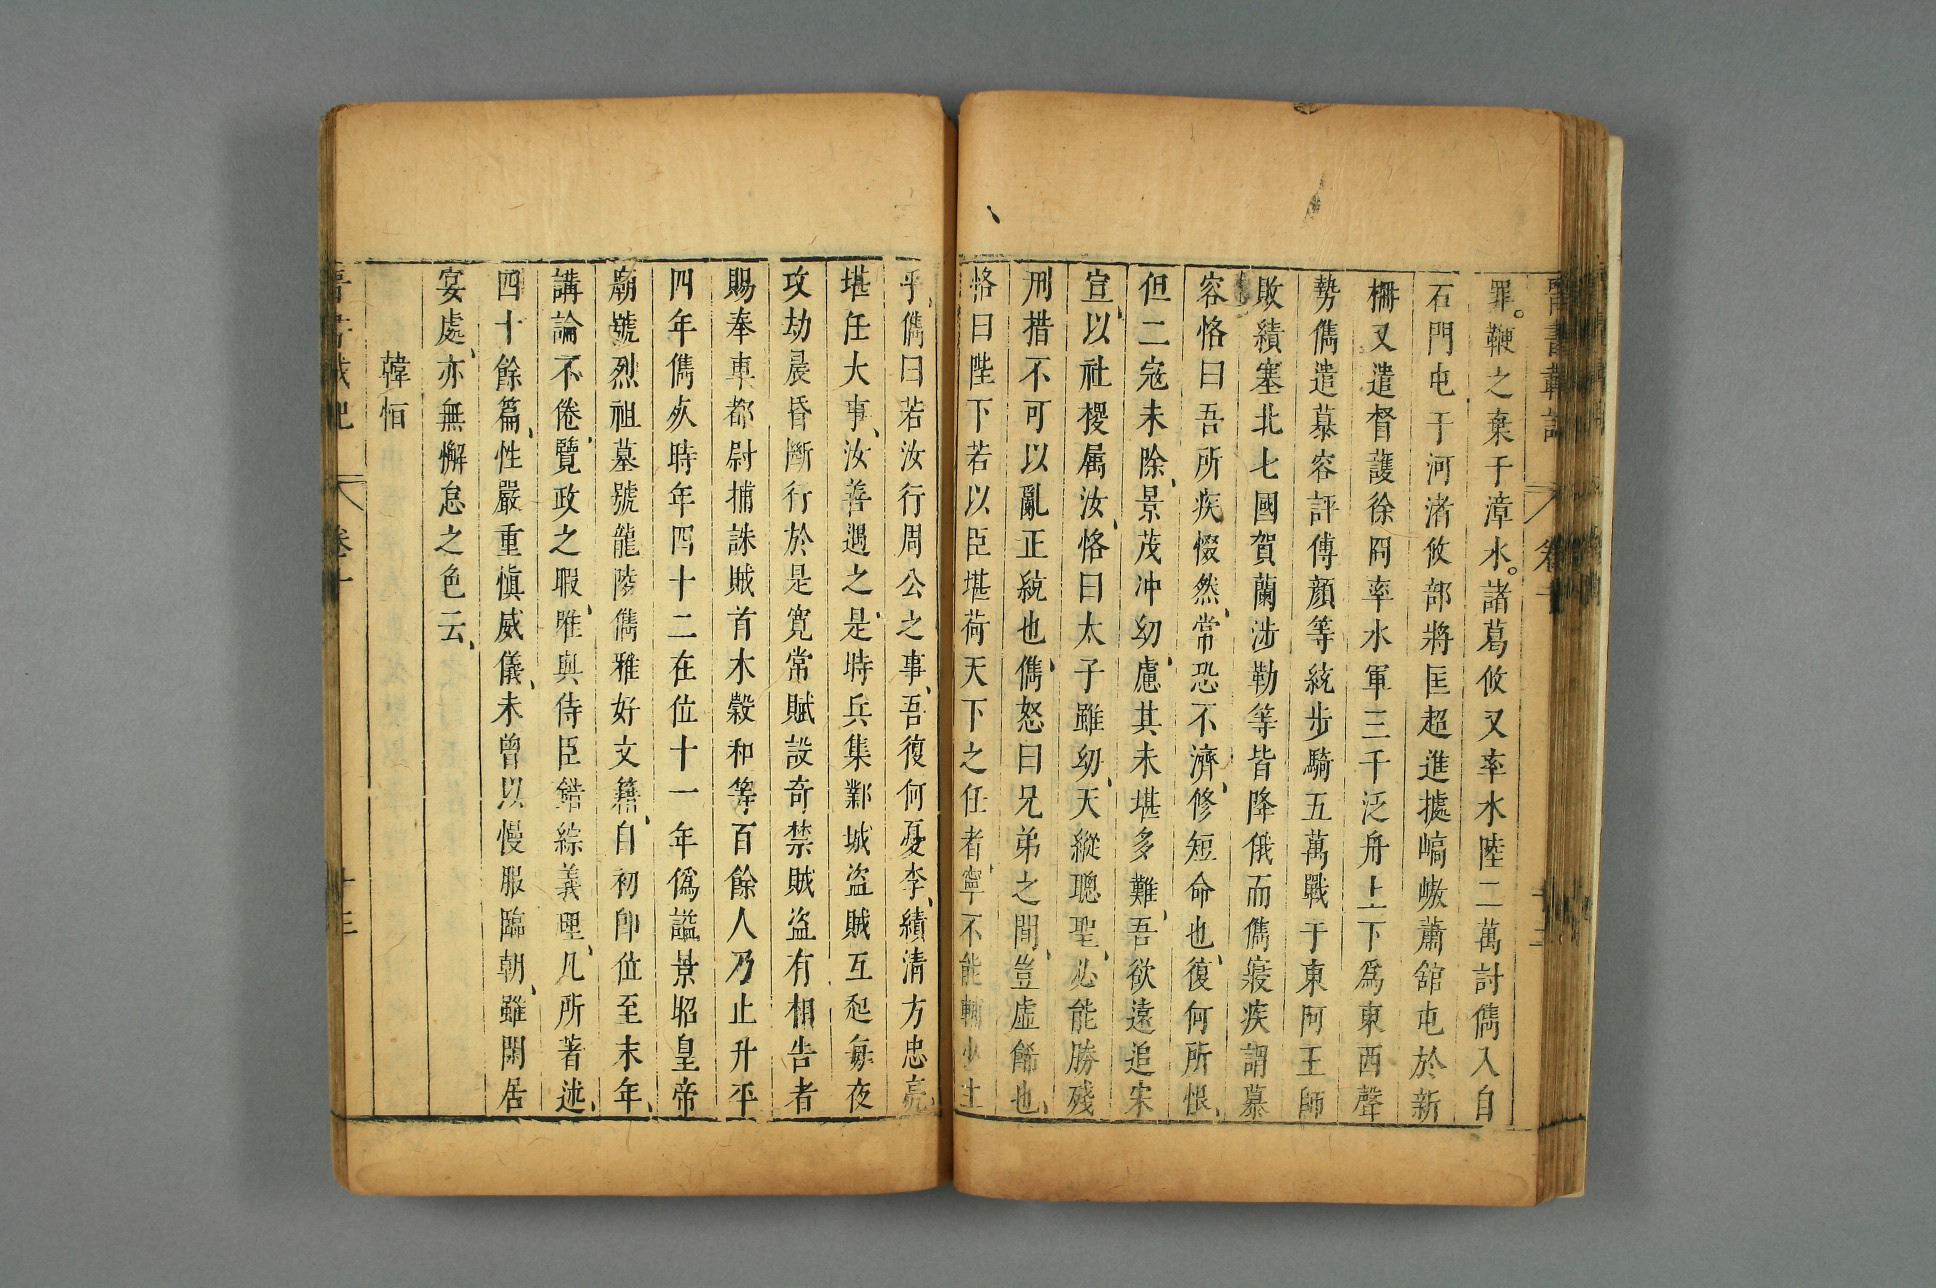 晉書載記 卷十 十三
罪鞭之棄于漳水。諸葛攸又率水陸二萬討儁入自
石門屯于河渚攸部將匡超進據嵪嶅蕭舘屯於新
柵又遣督護徐冏率水軍三千泛舟上下爲東西聲
勢儁遣慕容評傅顏等統步騎五萬戰于東阿王師
敗績塞北七國賀蘭涉勒等皆降俄而儁寢疾謂慕
容恪曰吾所疾惙然、常恐不濟、修短命也、復何所恨、
但二寇未除、景茂冲幼、慮其未堪多難、吾欲遠追宋
宣、以社稷属汝、恪曰太子雖幼、天縱聰聖、必能勝殘
刑措不可以亂正統也、儁怒曰兄弟之間、豈虛飾也、
恪曰陛下若以臣堪荷天下之任者、寧不能輔少主
乎、儁曰若汝行周公之事、吾復何憂李、績清方忠亮、
堪任大事、汝善遇之、是時兵集鄴城盜賊互起每夜
攻劫晨昏斷行於是寛常賦設奇禁賊盜有相告者
賜奉車都尉捕誅賊首木穀和等百餘人乃止升平
四年儁死時年四十二在位十一年僞謚景昭皇帝
廟號烈祖墓號龍陵儁雅好文籍、自初卽位至末年、
講論不倦、覽政之暇、唯與侍臣錯綜義理、凡所著述、
四十餘篇、性嚴重愼威儀、未曾以慢服臨朝、雖閑居
宴處、亦無懈怠之色云、
韓恒
晉書載記 卷十 十三